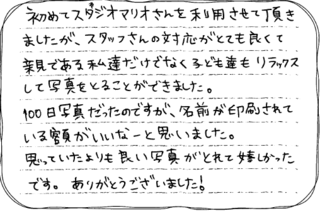 初めてスタジオマリオさんを利用させて頂き
ましたが、スタッフさんの対応がとても良くて
親である私達だけでなく子ども達も リラックス
して写真をとることができました。
100日写真だったのですが、名前が印刷されて
いる額がいいなーと思いました。
思っていたよりも良い写真がとれて嬉しかった
です。ありがとうございました!